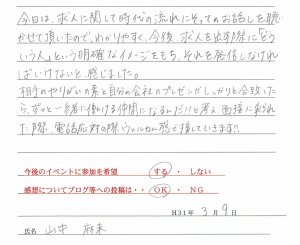 今日は、求人に関して時代の流れにそってのお話しを聴
かせて頂いたので、わかりやすく、今後、求人を出す際に「どう
いう人」という明確なイメージをもち、それを発信しなけれ
ばいけないと、感じました。
相手のやりがいの素と自分の会社のプレゼンがしっかりと合致した
ら、ずっと一緒に働ける仲間になるんだ!!と考え、面接に来られ
た際、電話応対の際、ウェルカム感で接していきます!!
今後のイベントに参加を希望 する ・ しない
感想についてブログ等への投稿は・・ OK ・ NG
H31年 3月 9日
氏名 山中 麻未